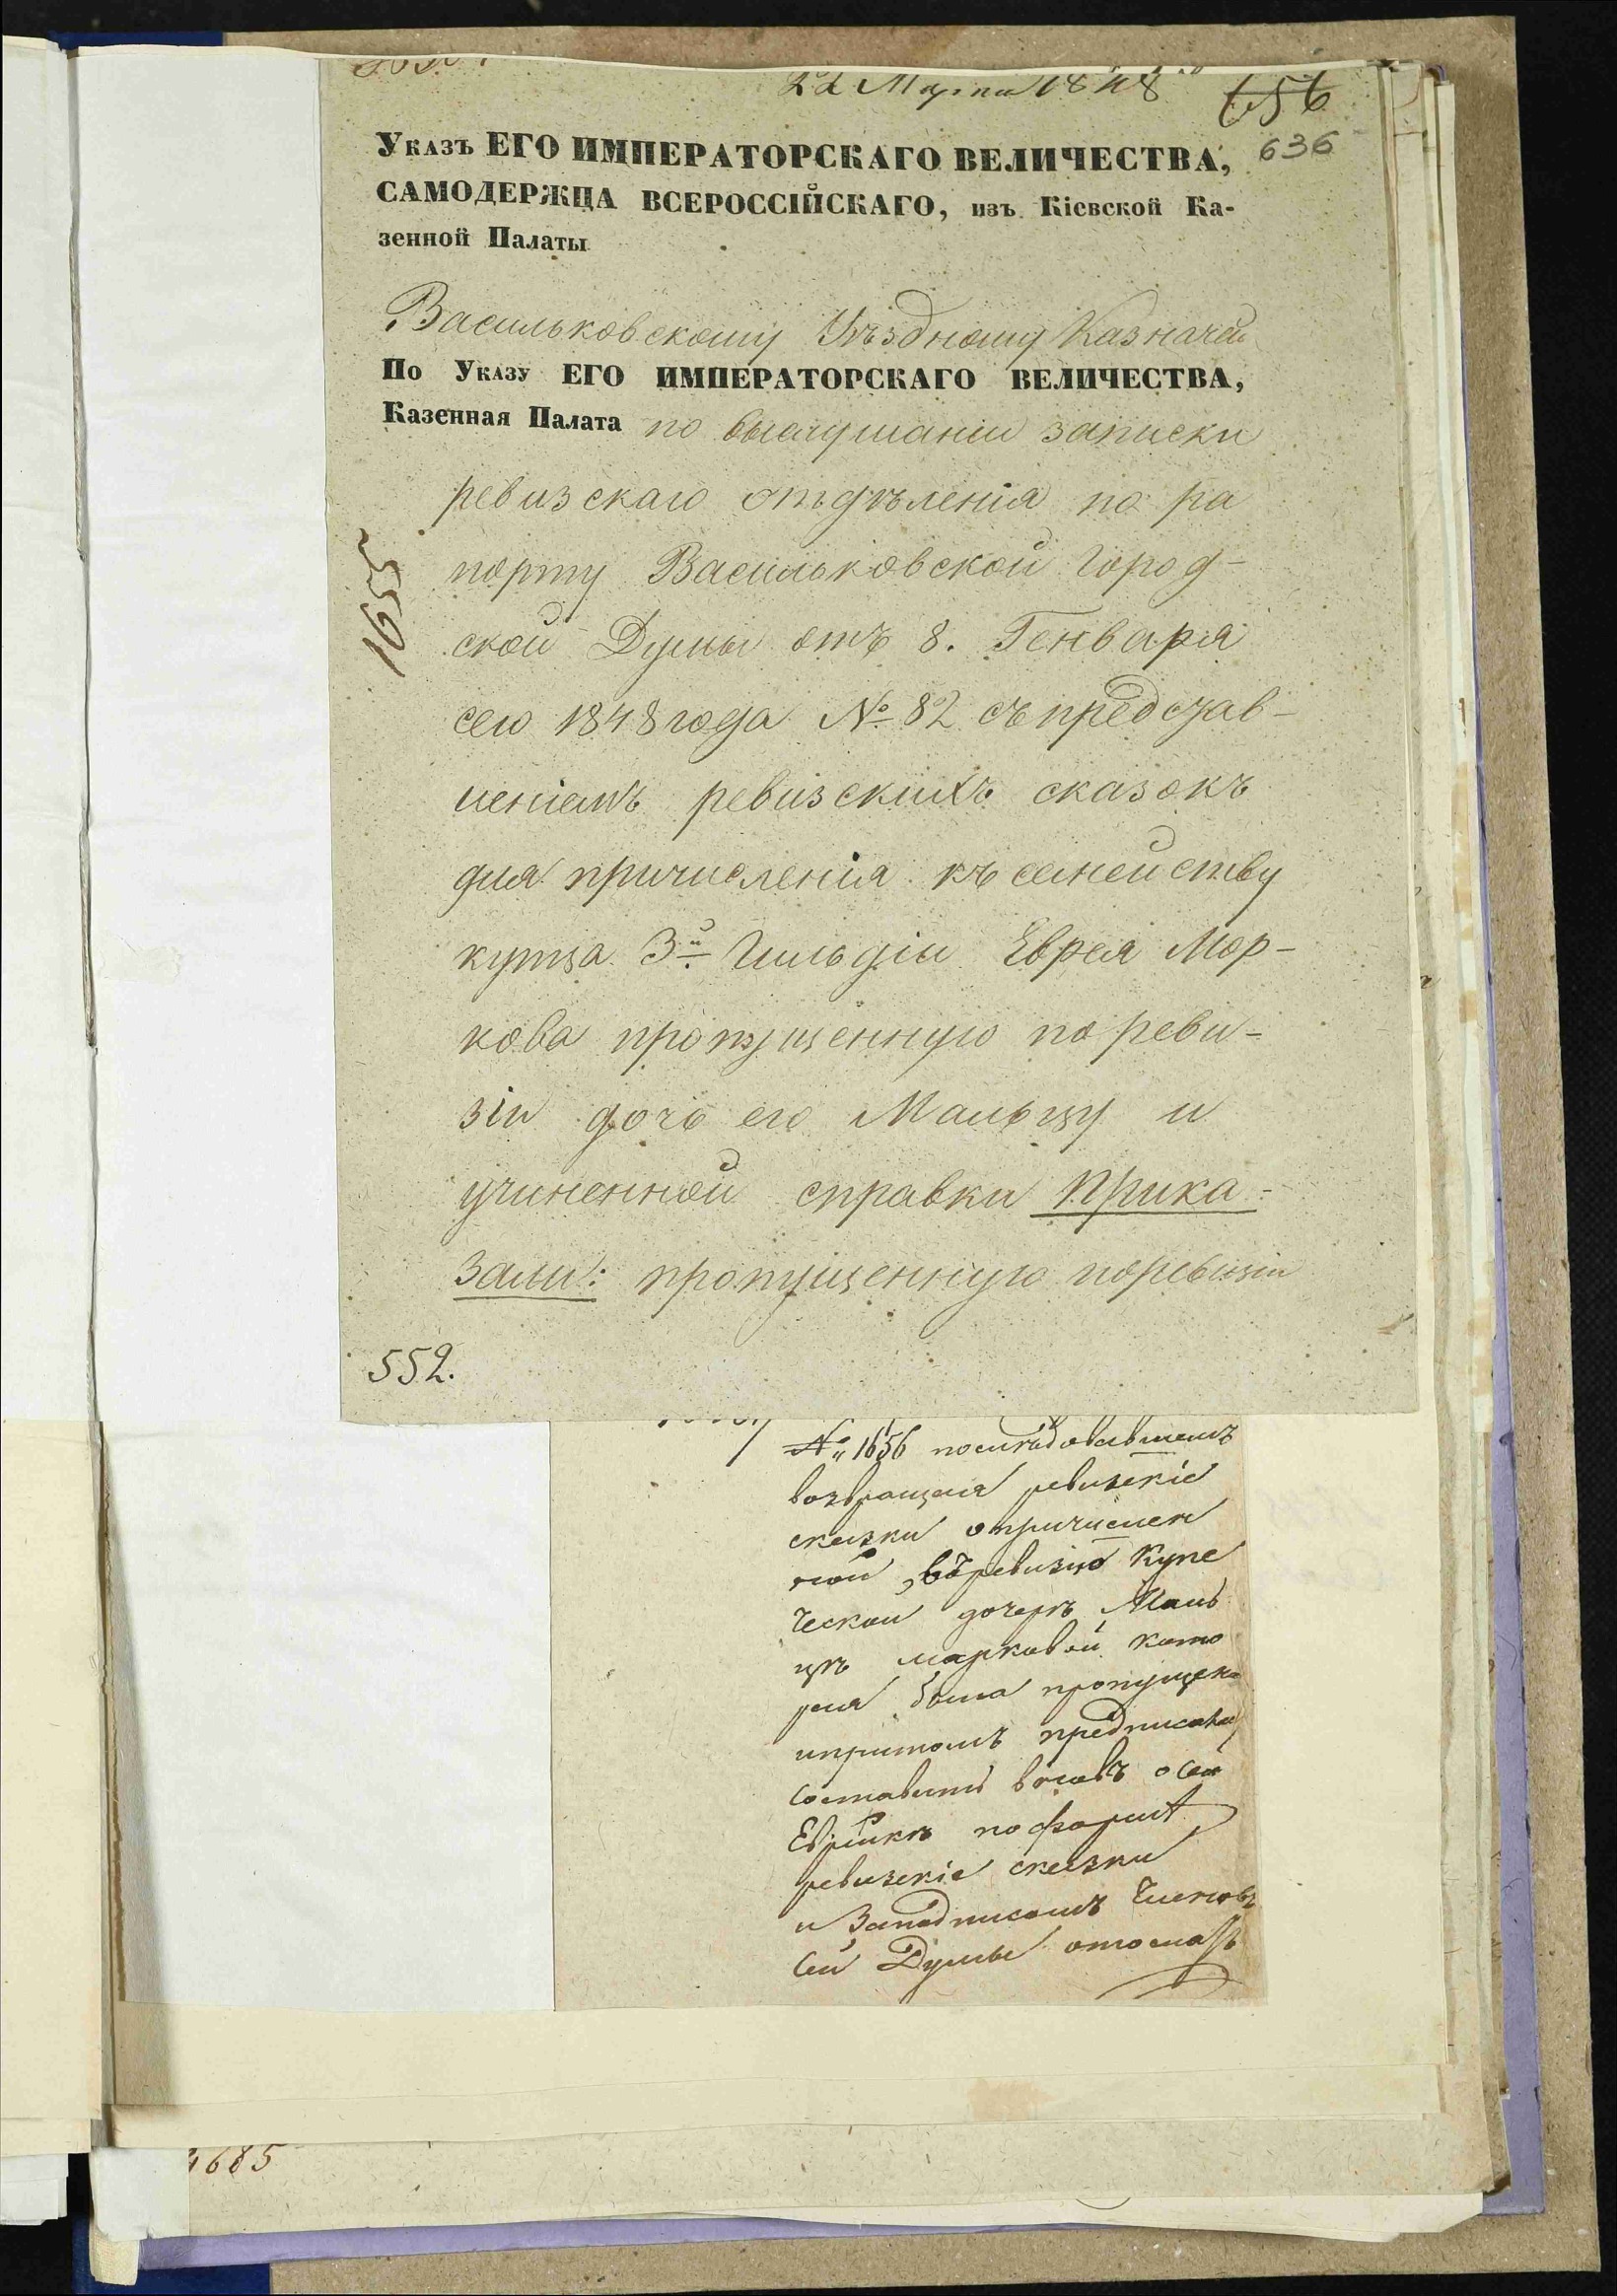 22 Марта 1848 го
656
636
Указъ ЕГО ИМПЕРАТОРСКАГО ВЕЛИЧЕСТВА,
САМОДЕРЖЦА ВСЕРОССІЙСКАГО, изъ Кіевской Ка-
зенной Палаты
Васильковскому Уѣздному Казначей
По Указу ЕГО ИМПЕРАТОРСКАГО ВЕЛИЧЕСТВА,
Казенная Палата по выслушаніи записки
ревизскаго отдѣленія по ра
порту Васильковской Город-
ской Думы отъ 8. Генваря
сего 1848 года № 82 съ представ-
леніемъ ревизскихъ сказокъ
для причисленія къ семейству
купца 3й Гильдіи Еврея Мор-
кова пропущенную по реви-
зіи дочь его Мальцу и
учиненной справки Прика-
зали: пропущенную по ревизіи
1655
552.
№ 1656 послѣдовавшемъ
возвращая ревизскіе
сказки о причислен
ной въ ревизію Купе
ческой дочерѣ Маль
цѣ Марковой кото
рая была пропущена
и притомъ предписано
составить вновь о сей
Еврейкѣ по формѣ
ревизскіе сказки
и За подписомъ Членовъ
сей Думы отослать
1685